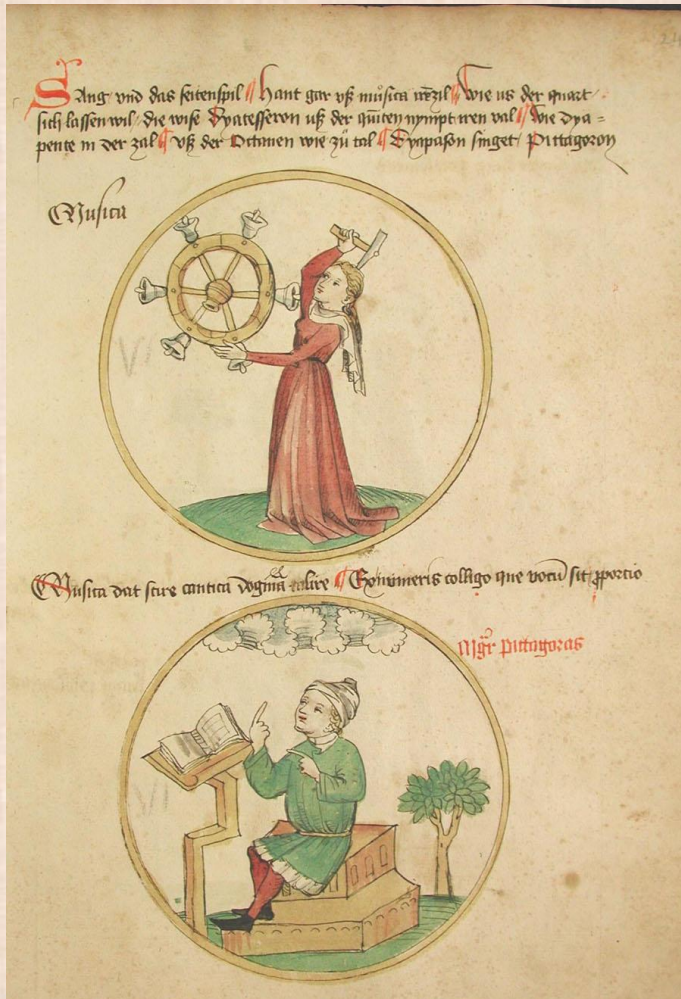 Sang vnd das seitenspil ¶ hant gar vß mu̇sica zil ¶ wie us der quart
sich lassen wil · die wise Dyatesseron uß der qu̅iten nympt iren val ¶ wie dya=
pente in der zal ¶ vß der Octauen wie zü tal ¶ Dyapason singet Pittagoron
Musica
Musica dat scire cantica dogma ¶ Ex numeris colligo que vocu̅ sit ꝓporcio
Mgr̅ pittagoras
VI
VI